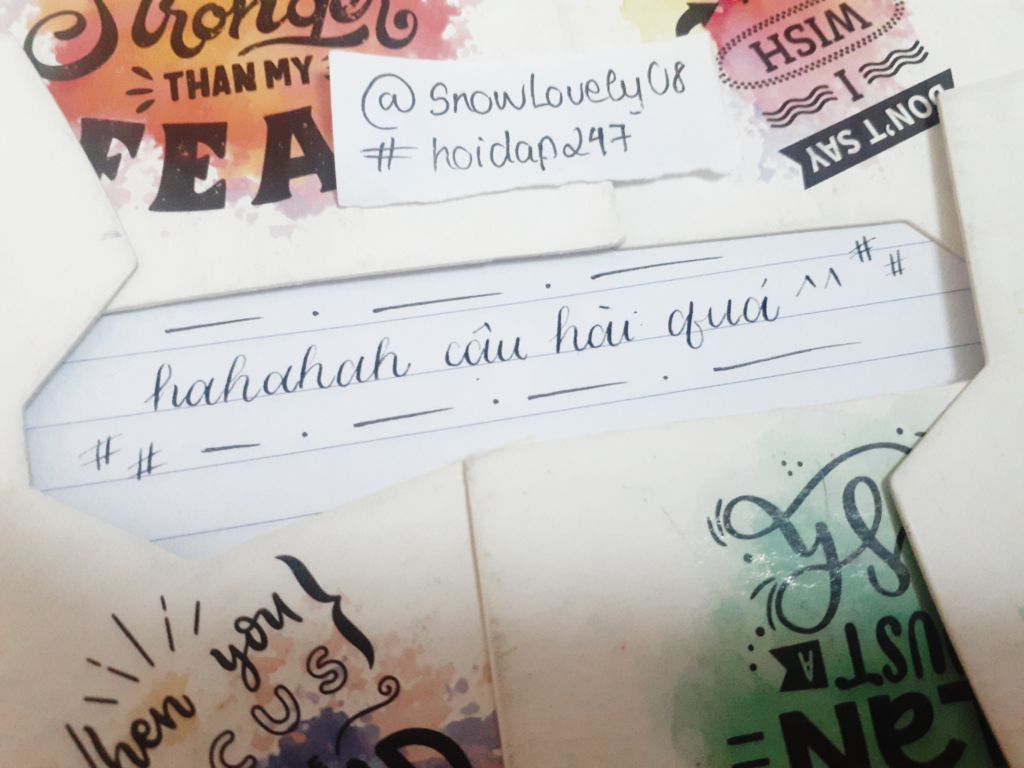 Stronger
THAN MY
FEA
@ SnowLovely08
# hoidap247
WISH
I
DON'T SAY
hahahah câu hài quá ^^ # #
# #
When you
CUS
JUST A